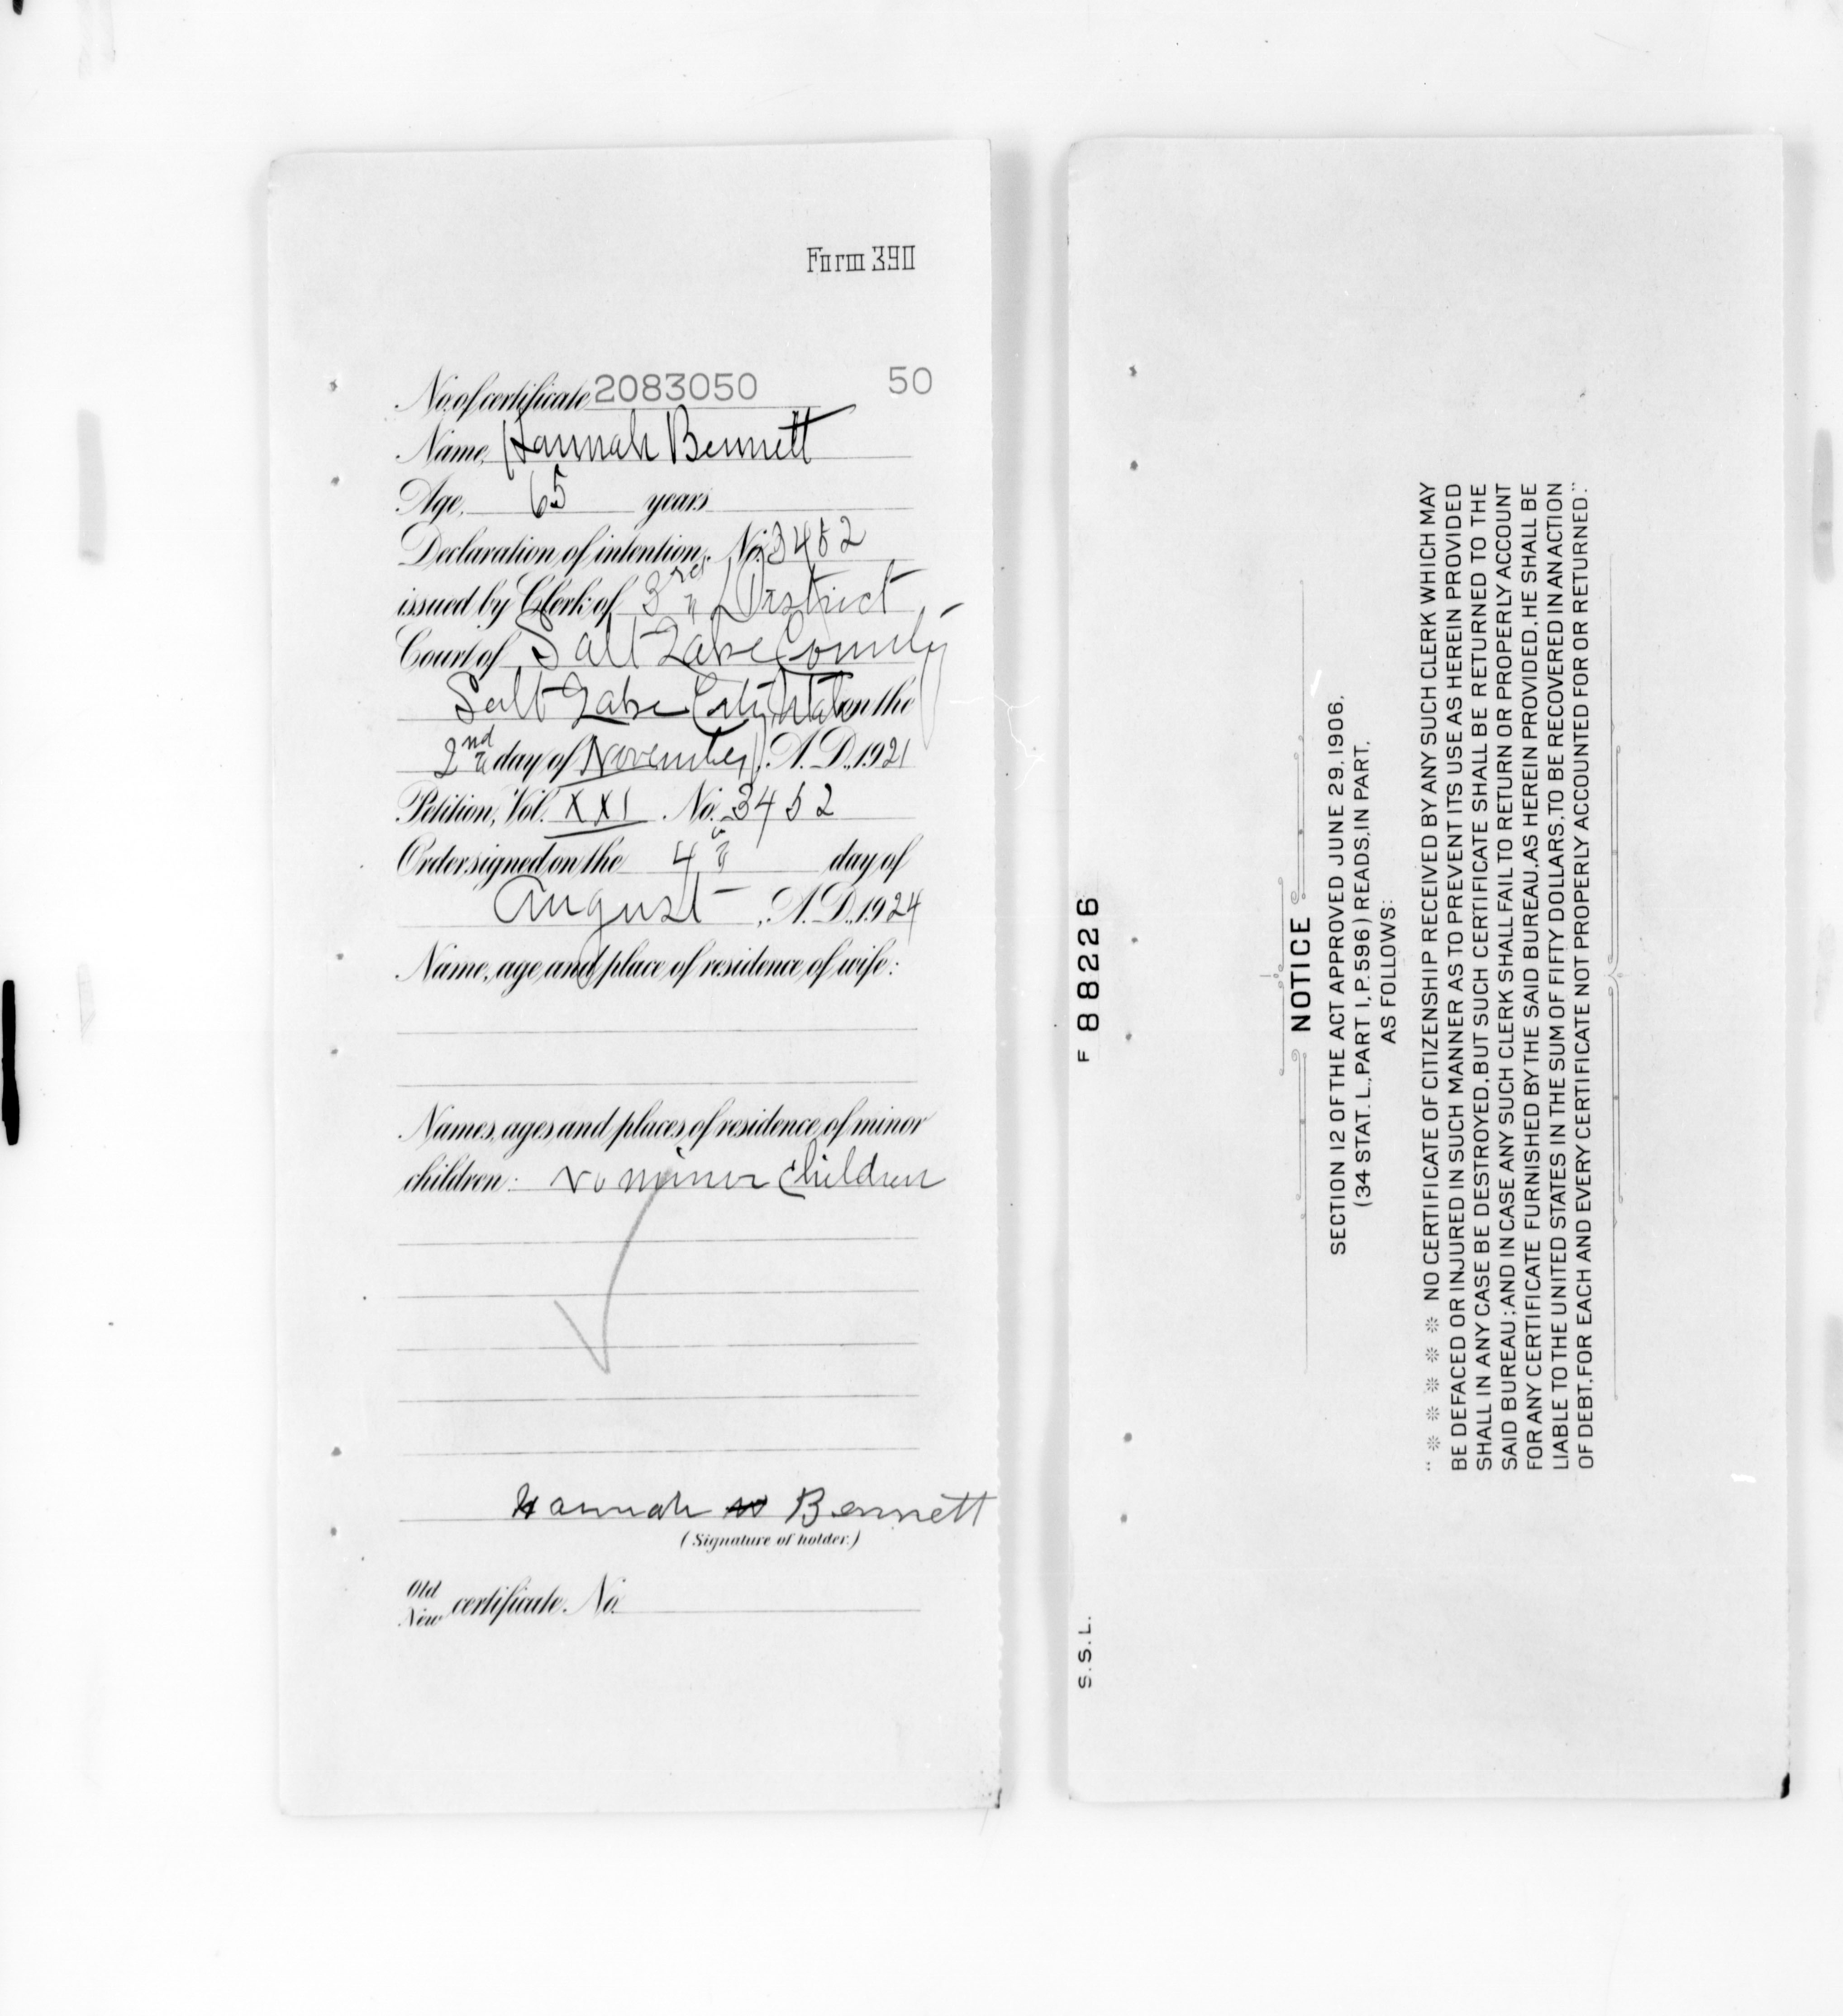 Form 390
No. of certificate 2083050 50
Name, Hannah Bennett
Age, 65 years
Declaration of intention, No. 3452
issued by Clerk of 3rd District
Court of Salt Lake County
Salt Lake City, Utah on the
2nd day of November, A.D., 1921
Petition, Vol. XXI No. 3452
Order signed on the 4th day of
August, A.D., 1924
Name, age, and place of residence of wife:
Names, ages and places of residence of minor
children: No minor Children
Hannah Bennett
(Signature of holder.)
Old
New certificate No.
F 88226
S.S.L.
NOTICE
SECTION 12 OF THE ACT APPROVED JUNE 29, 1906,
(34 STAT. L., PART I, P. 596) READS, IN PART,
AS FOLLOWS:
"* * * * * NO CERTIFICATE OF CITIZENSHIP RECEIVED BY ANY SUCH CLERK WHICH MAY
BE DEFACED OR INJURED IN SUCH MANNER AS TO PREVENT ITS USE AS HEREIN PROVIDED
SHALL IN ANY CASE BE DESTROYED, BUT SUCH CERTIFICATE SHALL BE RETURNED TO THE
SAID BUREAU; AND IN CASE ANY SUCH CLERK SHALL FAIL TO RETURN OR PROPERLY ACCOUNT
FOR ANY CERTIFICATE FURNISHED BY THE SAID BUREAU, AS HEREIN PROVIDED, HE SHALL BE
LIABLE TO THE UNITED STATES IN THE SUM OF FIFTY DOLLARS, TO BE RECOVERED IN AN ACTION
OF DEBT, FOR EACH AND EVERY CERTIFICATE NOT PROPERLY ACCOUNTED FOR OR RETURNED."